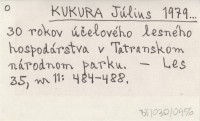 o
KUKURA Július 1979...
30 rokov účelového lesného
hospodárstva v Tatranskom
národnom parku. — Les
35, nr 11: 484-488.